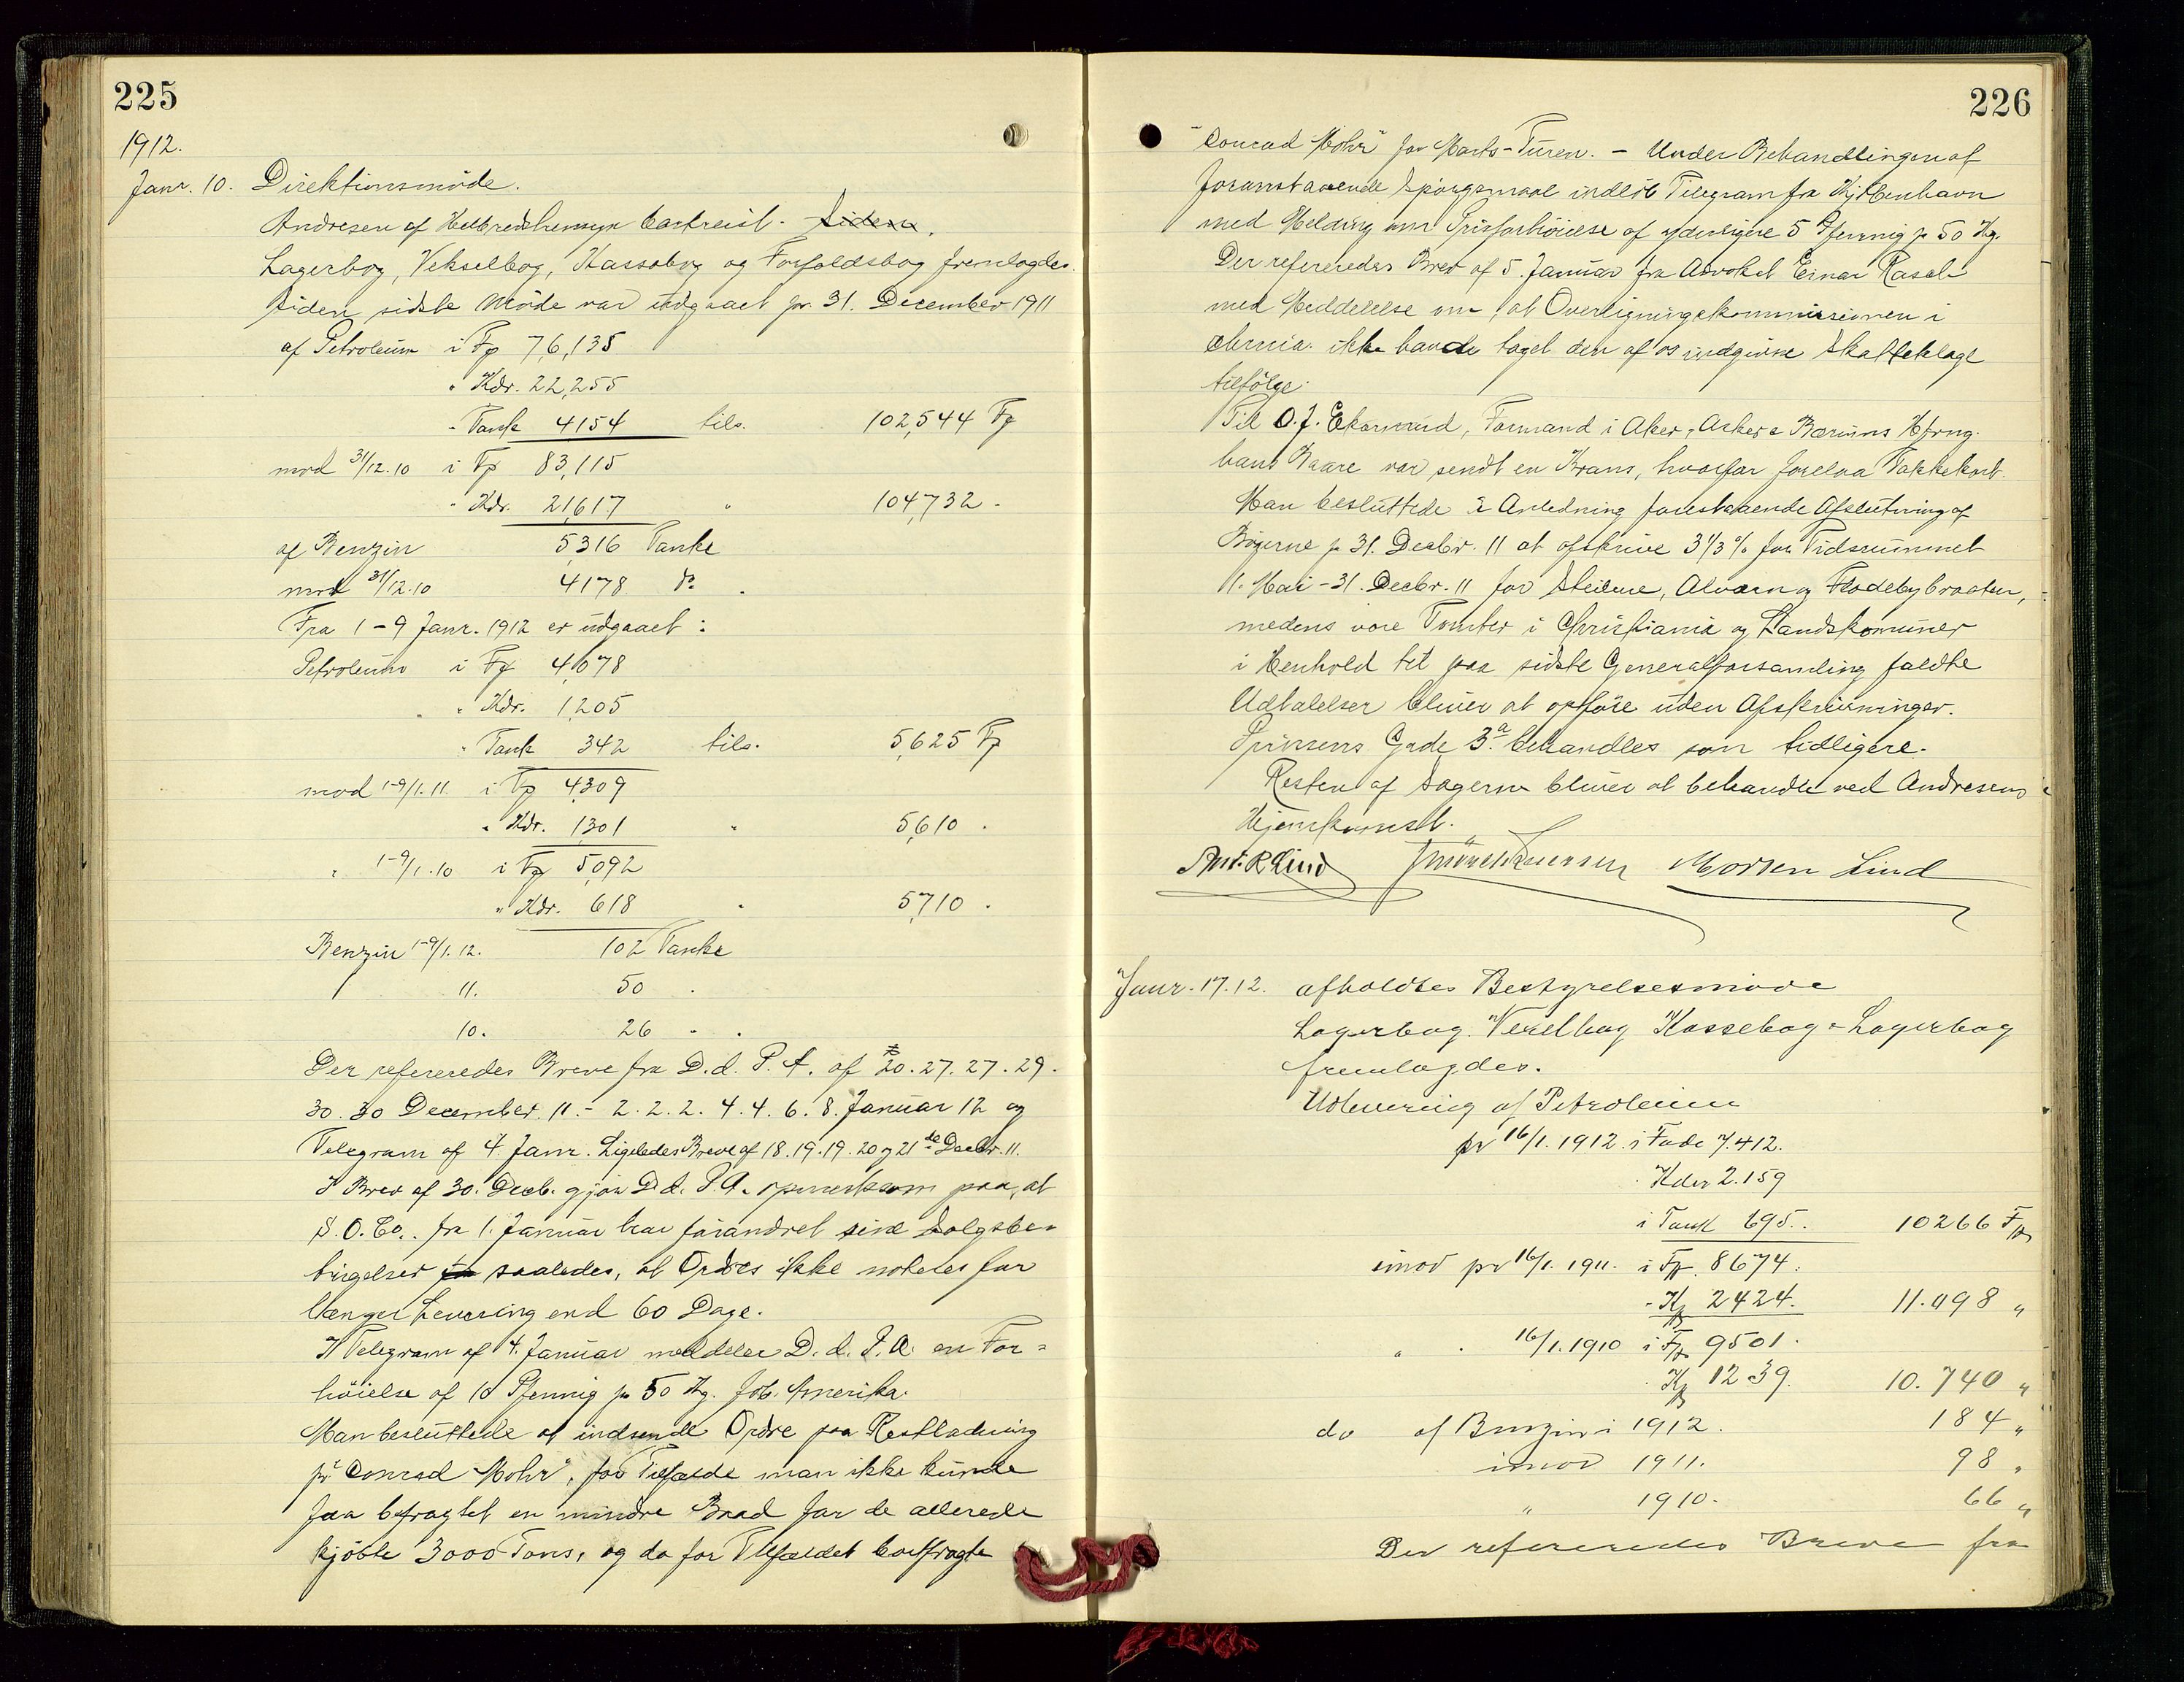 225
1912.
Janr. 10. Direktionsmöde.
Andresen af Helbredshensyn bortreist. Siden.
Lagerbog, Vekselbog, Kassabog og Forfaldsbog fremlagdes.
Siden sidste Möde var udgaaet pr. 31. December 1911
af Petroleum i Fp 76,135
" Kdr. 22,255
- Tank 4154 tils. 102,544 Fp
mod 31/12.10 i Fp 83,115
- Kdr. 21617 " 104,732 -
af Benzin 5,316 Tanke
mod 31/12.10 4178 do .
Fra 1-9 Janr. 1912 er udgaaet :
Petroleum i Fp 4,078
" " Kdr. 1,205
" Tank 342 tils. 5,625 Fp
mod 1-9/1.11. i Fp 4,309
" Kdr. 1,301 " 5,610 .
" 1-9/1.10 i Fp 5,092
" Kdr. 618 " 5,710 .
Benzin 1-9/1.12. 102 Tanke
11. 50 .
10. 26 - .
Der refereredes Breve fra D.d.P.A. af 20. 27. 27. 29.
30. 30 December. 11. - 2. 2. 2. 4. 4. 6. 8. Januar 12 og
Telegram af 4. Janr. Ligeledes Breve af 18. 19. 19. 20 og 21de Decbr. 11.
I Brev af 30. Decb. gjør D.d.P.A. opmerksom paa, at
S.O.Co.. fra 1. Januar har forandret sine Salgsbe-
tingelser saaledes, at Ordres ikke noteres for
længer Levering end 60 Dage.
I Telegram af 4. Januar meddeler D.d.P.A. en For=
höielse af 10 Pfennig pr 50 Kg. fob. Amerika.
Man besluttede at indsende Ordre paa Restladning
pr "Conrad Mohr", for Tilfælde man ikke kunde
faa befragtet en mindre Baad for de allerede
kjöbte 3000 Tons, og da for Tilfældet befragte
226
"Conrad Mohr" for Marts-Turen. - Under Behandlingen af
foranstaaende Spörgsmaal indlöb Telegram fra Kjöbenhavn
med Melding om Prisforhöielse af yderligere 5 Pfennig pr 50 Kg.
Der refereredes Brev af 5. Januar fra Advokat Einar Rasch
med Meddelelse om, at Overligningskommissionen i
Chrnia. ikke havde taget den af os indgivne Skatteklage
tilfölge.
Til O.J. Ekornrud, Formand i Aker, Asker & Bærums Hfrng.
hans Baare var sendt en Krans, hvorfor forelaa Takkekort.
Man besluttede i Anledning forestaaende Afslutning af
Bögerne pr 31. Decbr. 11 at afskrive 3 1/3 % for Tidsrummet
1. Mai - 31. Decbr. 11 for Steilene, Alværn og Flodebybraaten,
medens vore Tomter i Christiania og Landskomuner
i Henhold til paa sidste Generalforsamling faldte
Udtalelser bliver at opföre uden Afskrivninger.
Prinsens Gade 3a. behandles som tidligere.
Resten af Sagerne bliver at behandle ved Andresens
Hjemkomst.
Ant. R. Lind Morten Lind
Janr. 17. 12. afholdtes Bestyrelsesmøde
Lagerbog. Vexelbog Kassebog & Lagerbog
fremlagdes.
Udlevering af Petroleum
pr 16/1. 1912. i Fade 7.412.
" Kdr 2.159
i Tank 695. . 10266 Fp
imod pr 16/1. 1911. i Fp. 8674.
- Kp 2424. 11.098 "
" . 16/1. 1910 i Fp 9501.
. Kp 1239. 10.740 "
do af Benzin i 1912. 184 "
imod 1911. 98 "
" 1910. 66 "
Der refereredes Breve fra